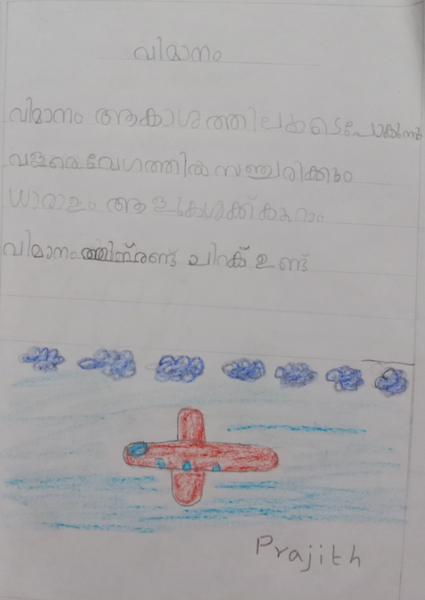 വിമാനം
വിമാനം ആകാശത്തിലക്കുടെപോകുന്നു
വളരെവേഗത്തിൽ സഞ്ചരിക്കും
ധാരാളം ആളുകൾക്ക് കയറാം
വിമാനത്തിന് രണ്ട് ചിറക് ഉണ്ട്
Prajith